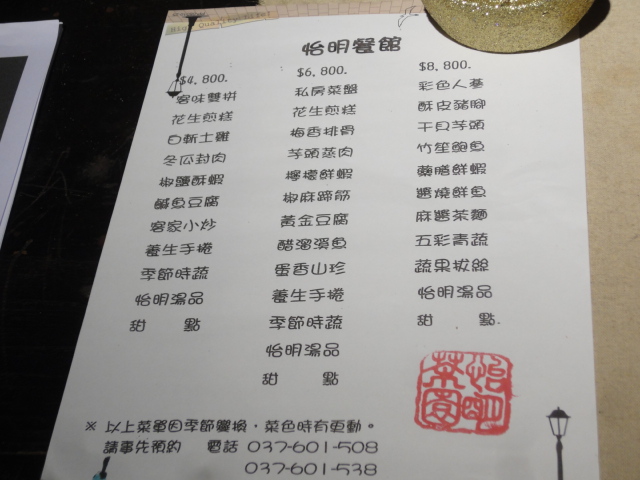 怡明餐館
$4,800.
客味雙拼
花生煎糕
白斬土雞
冬瓜封肉
椒鹽酥蝦
鹹魚豆腐
客家小炒
養生手捲
季節時蔬
怡明湯品
甜 點
$6,800.
私房菜盤
花生煎糕
梅香排骨
芋頭蒸肉
檸檬鮮蝦
椒麻蹄筋
黃金豆腐
醋溜溪魚
蛋香山珍
養生手捲
季節時蔬
怡明湯品
甜 點
$8,800.
彩色人蔘
酥皮豬腳
干貝芋頭
竹笙鮑魚
藥膳鮮蝦
醬燒鮮魚
麻醬茶麵
五彩青蔬
蔬果拔絲
怡明湯品
甜 點.
怡明菜園
※ 以上菜單因季節變換,菜色時有更動。
請事先預約 電話 037-601-508
037-601-538